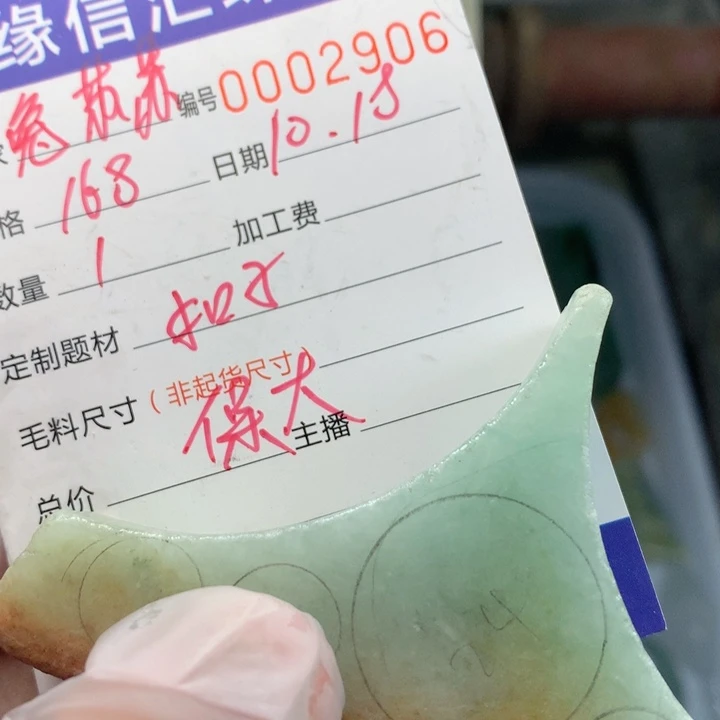 缘信汇
编号 0002906
格 168 日期 10.18
数量 1 加工费
定制题材 扣子
毛料尺寸（非起货尺寸）
保大 主播
总价
24